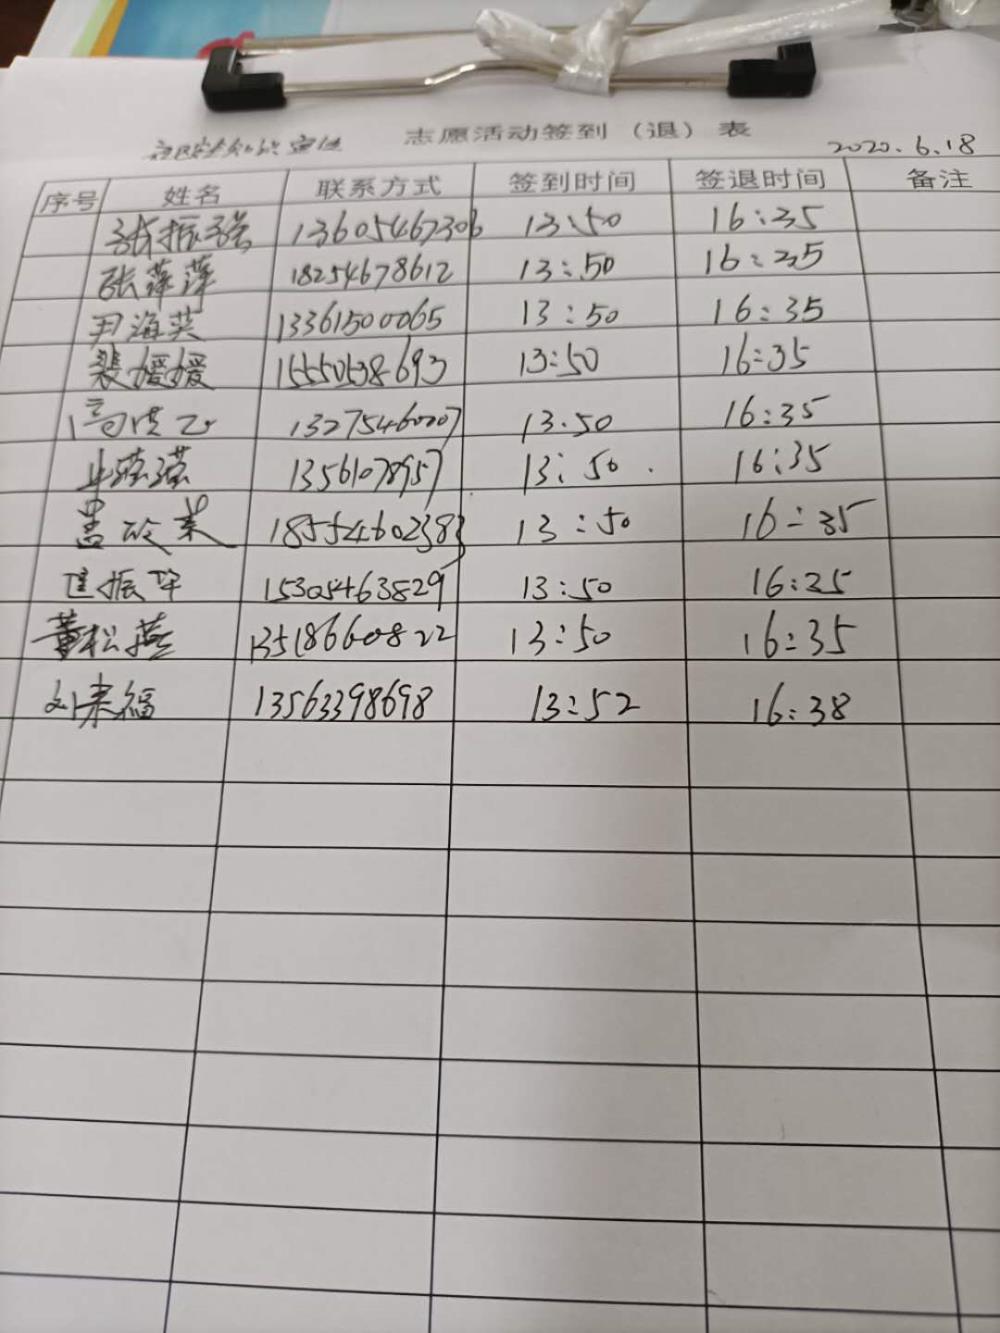 志愿活动签到（退）表
2020.6.18
序号 姓名 联系方式 签到时间 签退时间 备注
张振强 13605467306 13:50 16:35
张萍萍 18254678612 13:50 16:35
尹海英 13361500065 13:50 16:35
裴媛媛 15550538693 13:50 16:35
13275460207 13.50 16:35
13561078957 13:50. 16:35
18554602383 13:50 16:35
振华 15305463829 13:50 16:25
董松燕 13518660822 13:50 16:35
刘来福 13563398698 13:52 16:38